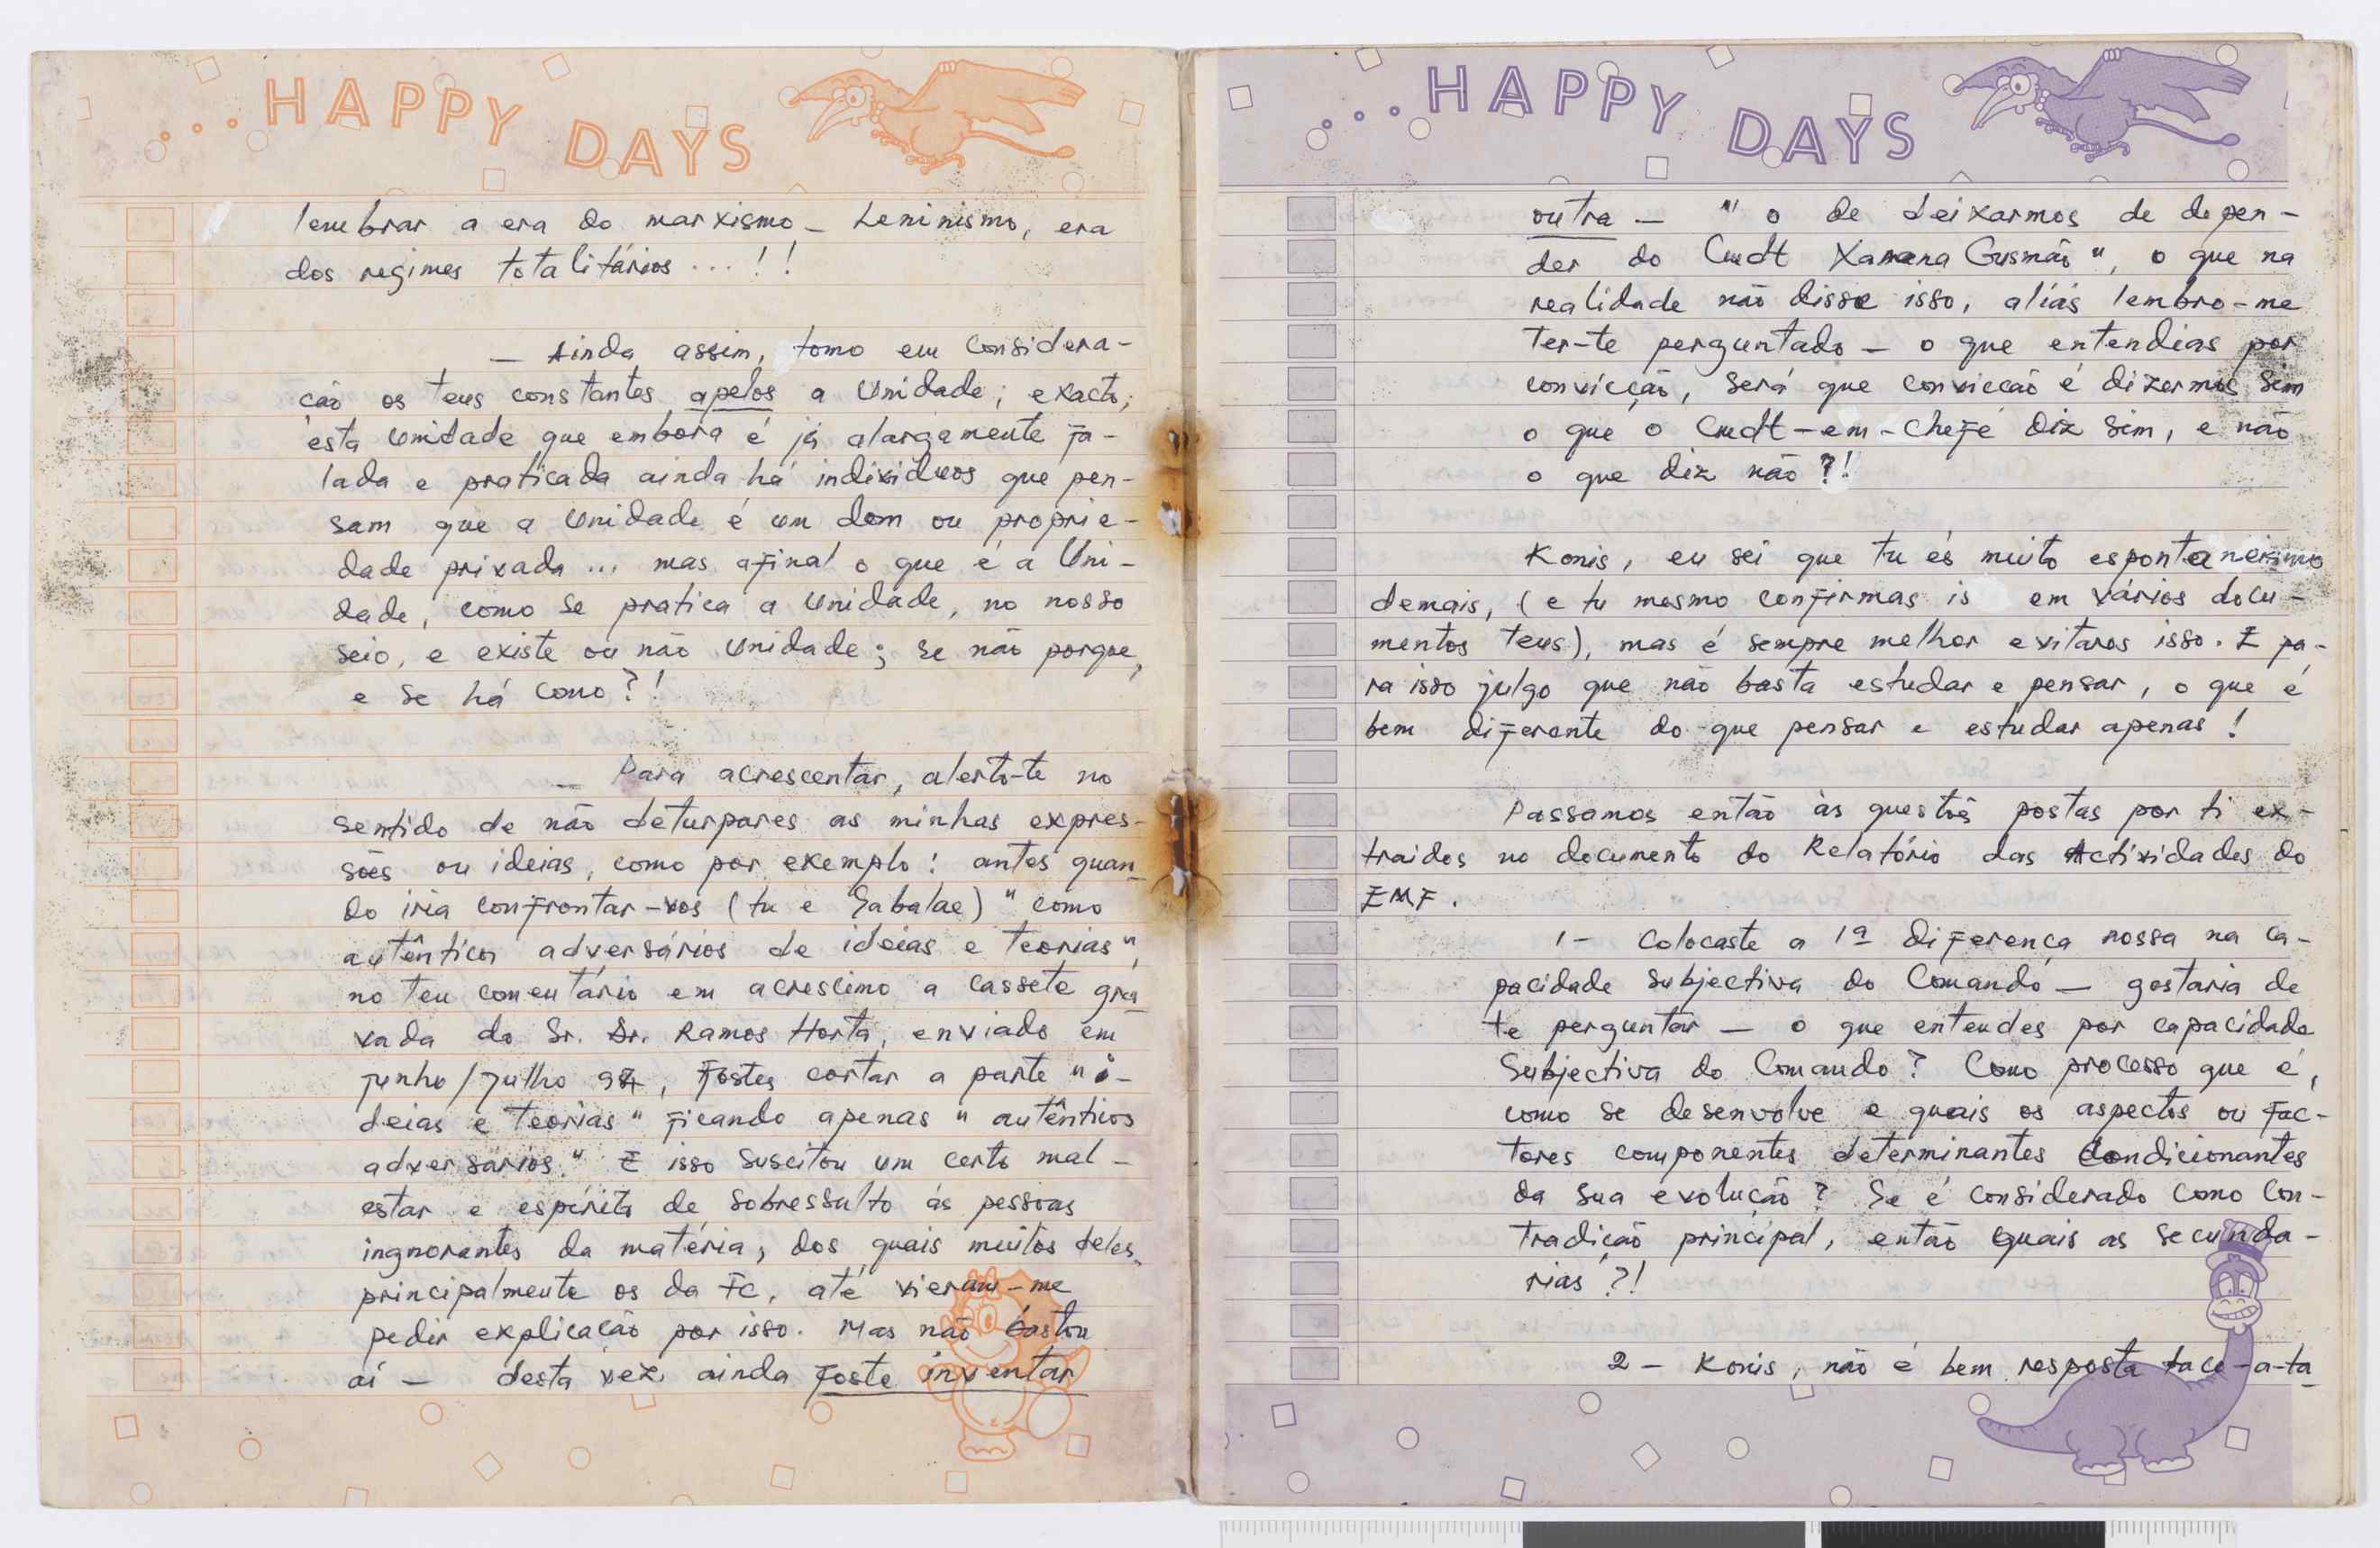 ...HAPPY DAYS
lembrar a era do marxismo - Leninismo, era
dos regimes totalitários ... !!
— Ainda assim, tomo em considera-
ção os teus constantes apelos a Unidade; exacto,
esta Unidade que embora é já alargamente fa-
lada e praticada ainda há individuos que pen-
sam que a Unidade é um dom ou proprie-
dade privada ... mas afinal o que é a Uni-
dade, como se pratica a Unidade, no nosso
seio, e existe ou não Unidade; se não porque,
e se há como?!
— Para acrescentar, alerto-te no
sentido de não deturpares as minhas expres-
sões ou ideias, como por exemplo: antes quan-
do iria confrontar-vos (tu e Sabalae) "como
autênticos adversários de ideias e teorias",
no teu comentário em acrescimo a cassete gra-
vada do Sr. Dr. Ramos Horta, enviado em
Junho/Julho 97, fostes cortar a parte "i-
deias e teorias" ficando apenas "autênticos
adversarios." E isso suscitou um certo mal-
estar e espírito de sobressulto ás pessoas
ingnorantes da matéria, dos quais muitos deles,
principalmente os da Fc, até vieram-me
pedir explicação por isso. Mas não bastou
aí — desta vez, ainda foste inventar
...HAPPY DAYS
outra — "o de deixarmos de depen-
der do Cmdt Xanana Gusmão", o que na
realidade não disse isso, aliás lembro-me
ter-te perguntado — o que entendias por
convicção, será que convicção é dizermos sim
o que o Cmdt-em-chefe diz sim, e não
o que diz não?!
Konis, eu sei que tu és muito espontaneismo
demais, (e tu mesmo confirmas is em vários docu-
mentos teus), mas é sempre melhor evitares isso. E pa-
ra isso julgo que não basta estudar e pensar, o que é
bem diferente do que pensar e estudar apenas!
Passamos então às questõs postas por ti ex-
traidos no documento do Relatório das Actividades do
EMF.
1- Colocaste a 1ª diferença nossa na ca-
pacidade subjectiva do Comando — gostaria de
te perguntar — o que entendes por capacidade
Subjectiva do Comando? Como processo que é,
como se desenvolve e quais os aspectos ou fac-
tores componentes determinantes condicionantes
da sua evolução? Se é considerado como con-
tradição principal, então quais as secunda-
rias?!
2 - Konis, não é bem resposta taco-a-ta